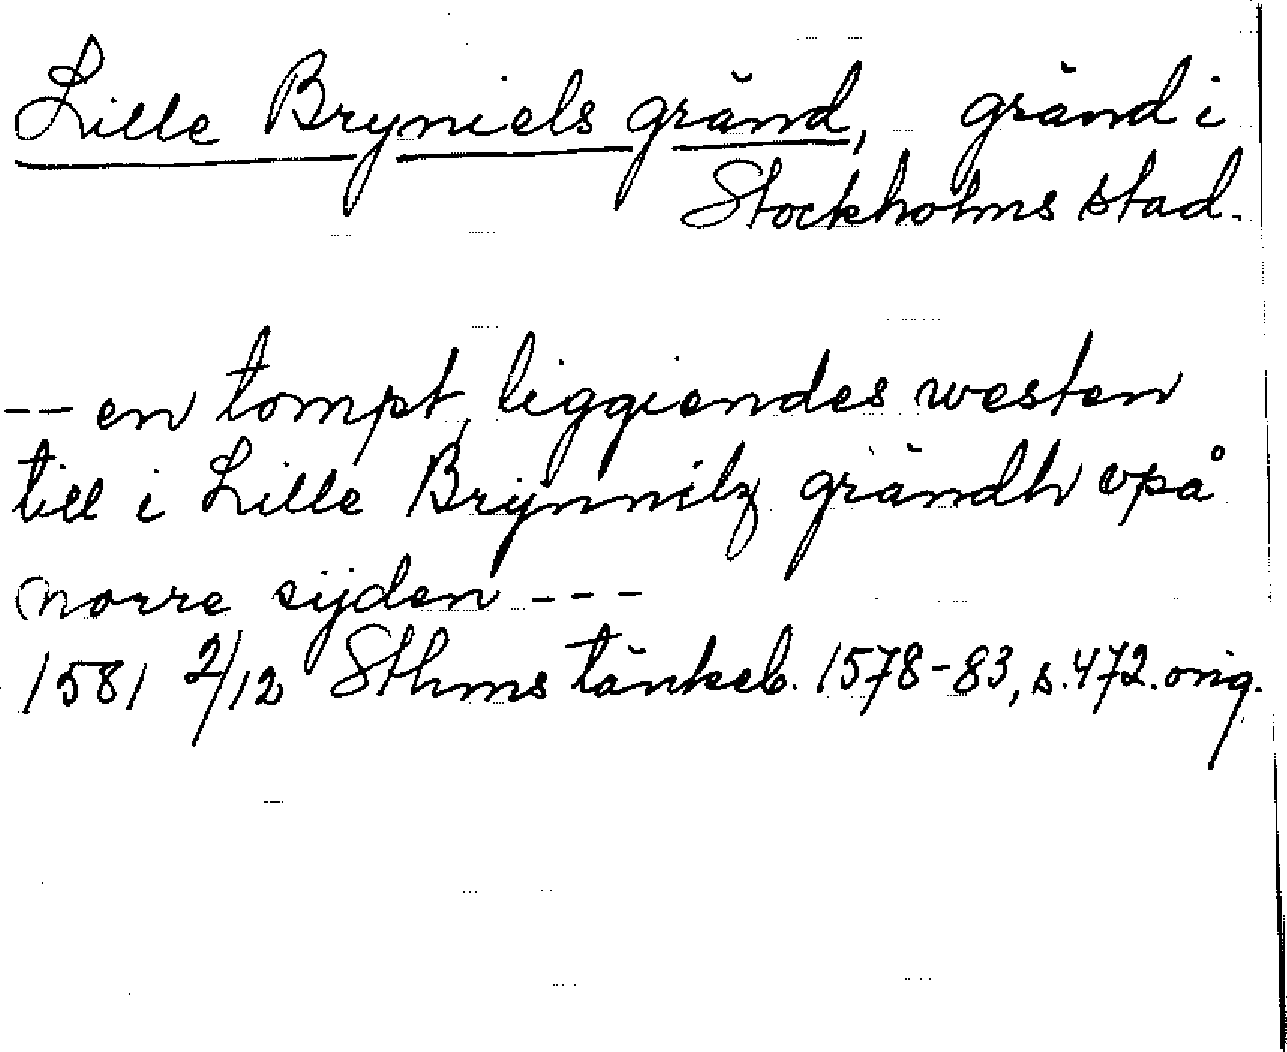 Lille Bryniels gränd, gränd i
Stockholms stad.
-- en tompt, liggiendes westen
till i Lille Brÿnnilz grändh opå
norre sijden ---
1581 2/12 Sthms tänkeb. 1578-83, s. 472. orig.